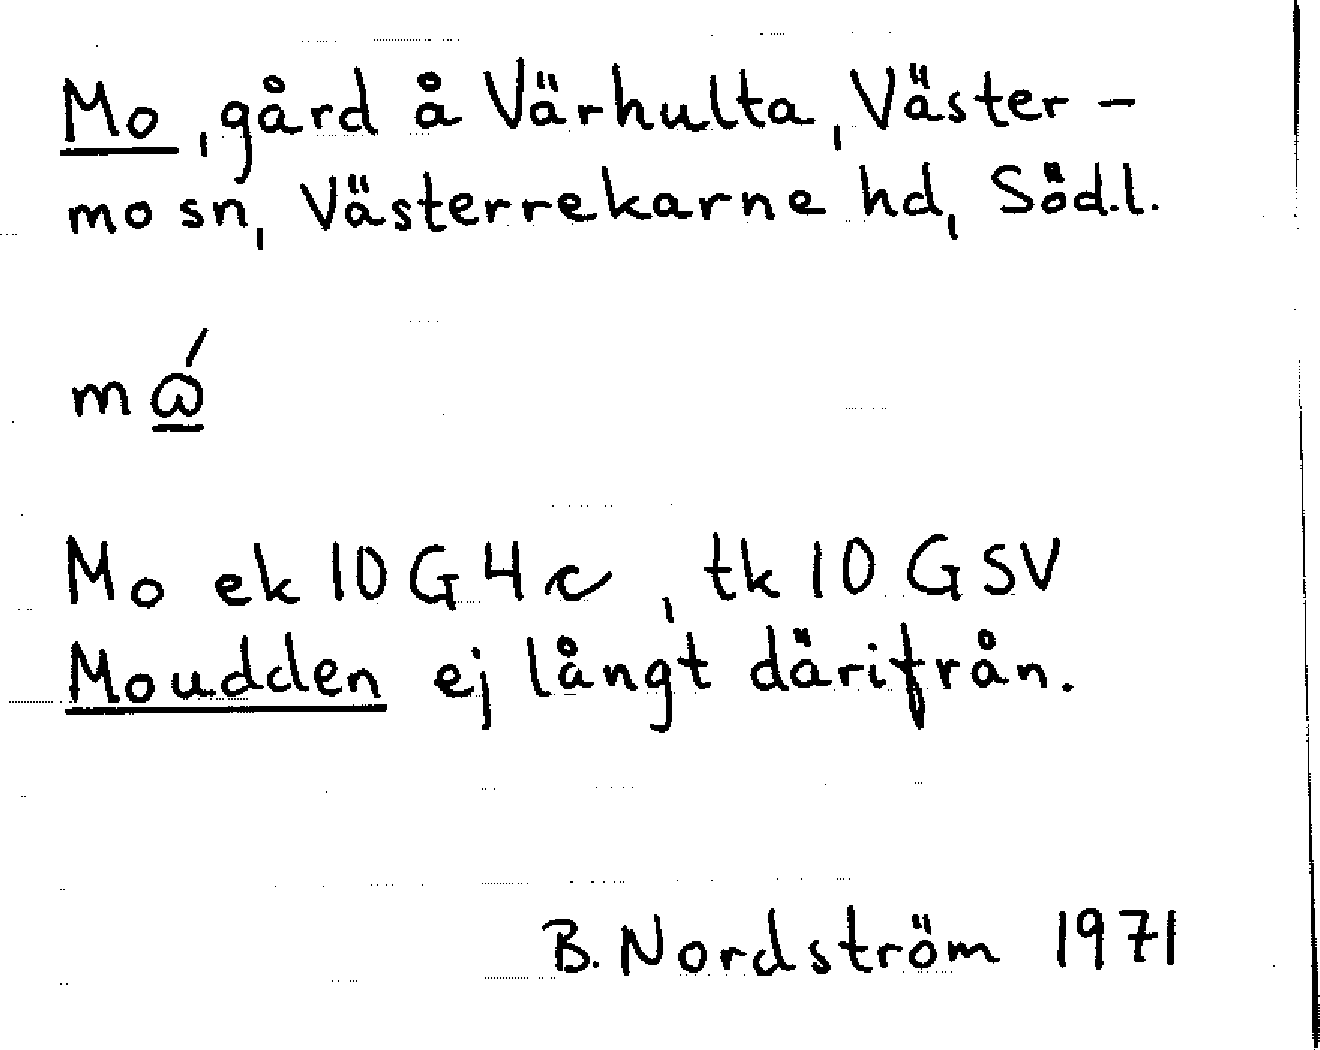 Mo, gård å Värhulta, Väster-
mo sn, Västerrekarne hd, Södl.
mⱺ́
Mo ek 10 G 4 c, tk 10 G SV
Moudden ej långt därifrån.
B. Nordström 1971